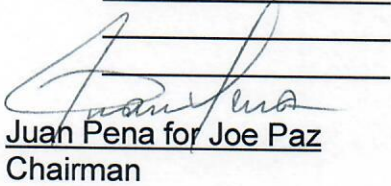 Juan Pena
Juan Pena for Joe Paz
Chairman